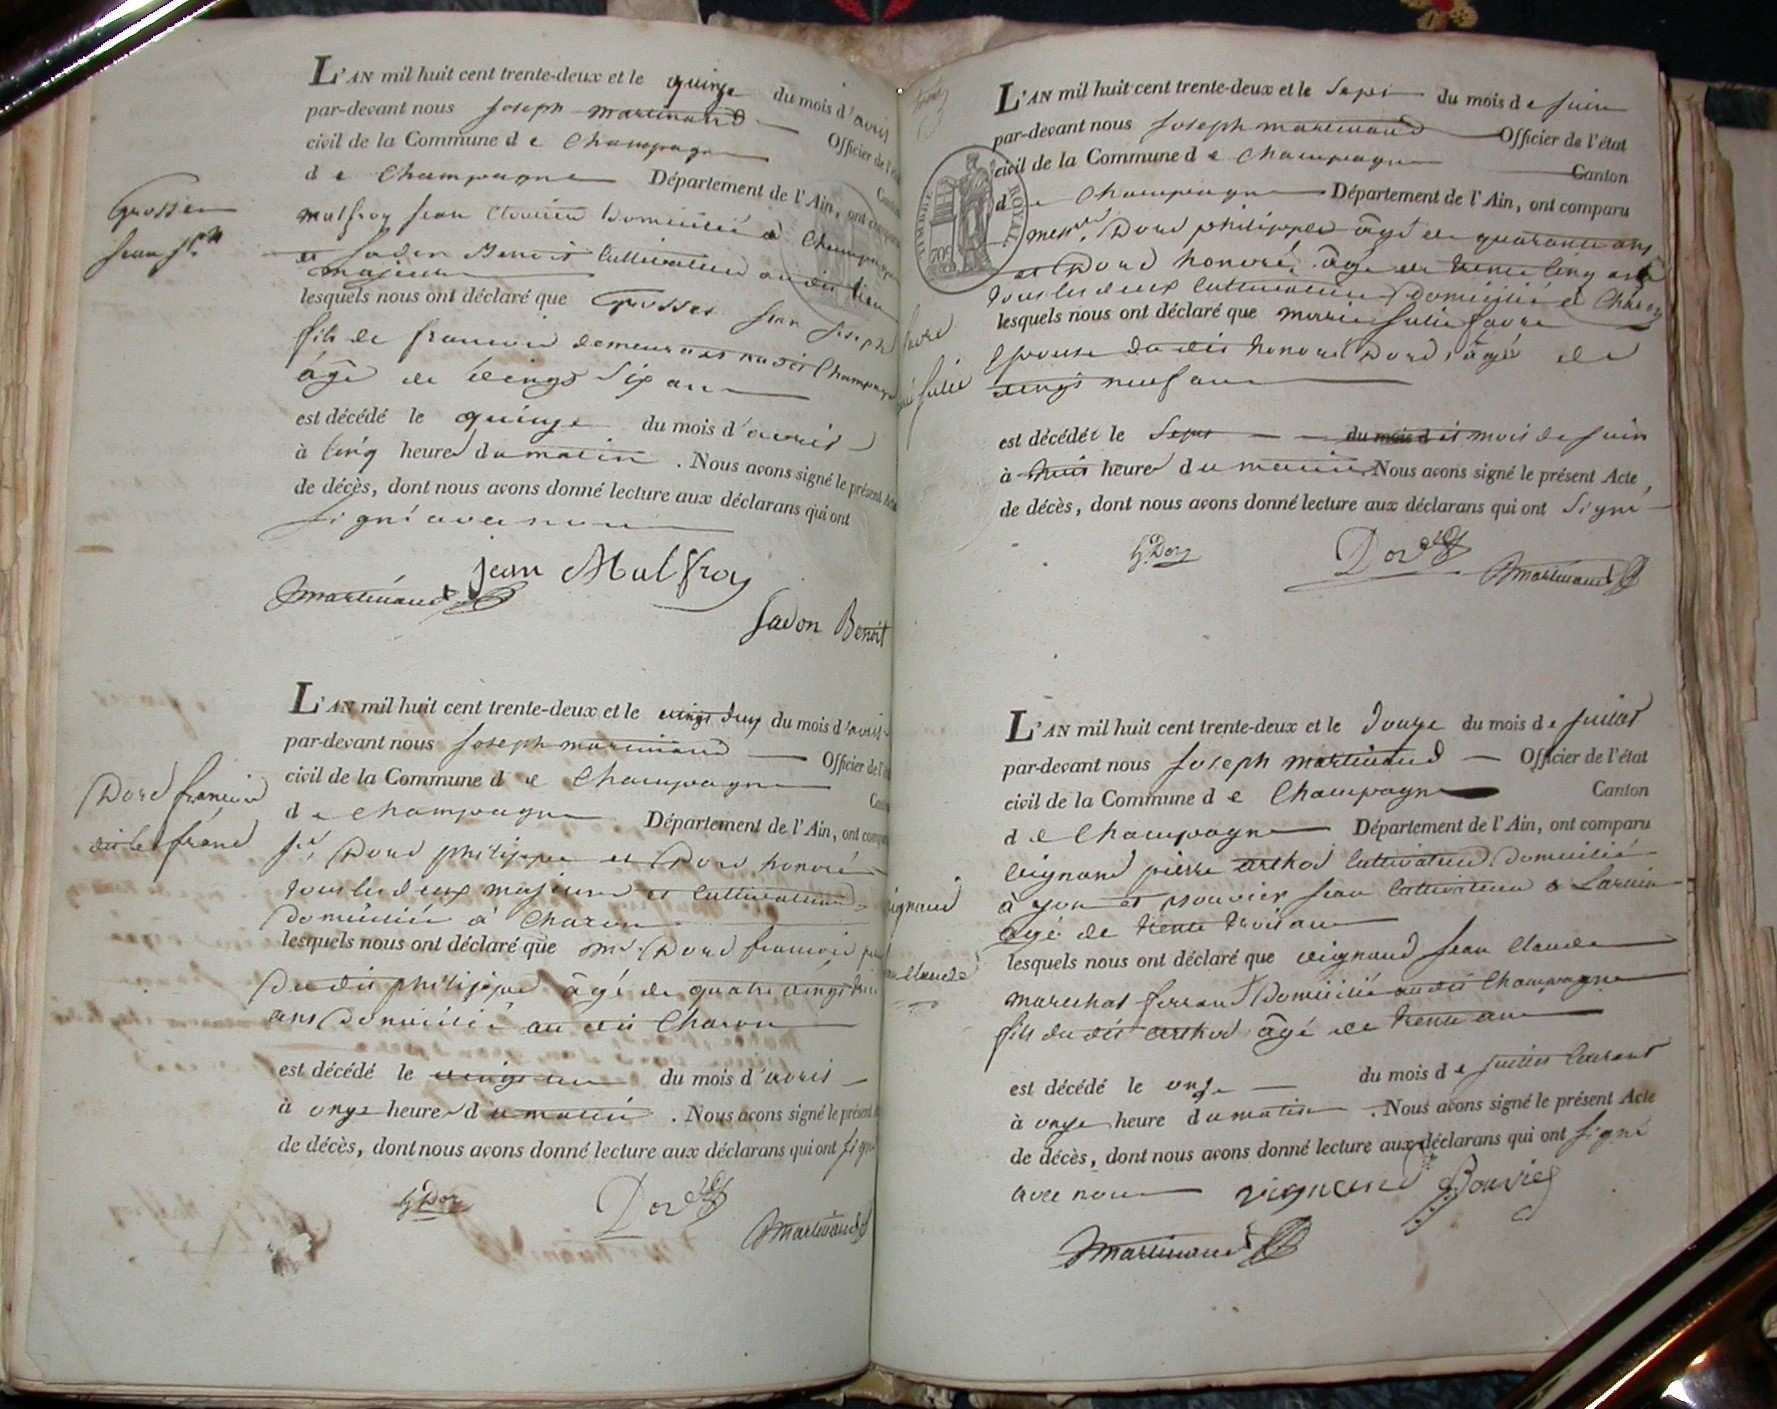 Grosset
Jean Jh
L'AN mil huit cent trente-deux et le quinze du mois d'avril
par-devant nous Joseph martinand Officier de l'état
civil de la Commune de Champagne Canton
de Champagne Département de l'Ain, ont comparu
Jean domicilié à Champagne
et Savon Benoit Cultivateur au dit lieu
majeurs
lesquels nous ont déclaré que Grosset Jean Joseph
fils de françois demeurant audit Champagne
âgé de vingt six ans
est décédé le quinze du mois d'avril
à cinq heures du matin. Nous avons signé le présent Acte
de décès, dont nous avons donné lecture aux déclarans qui ont
signé avec nous
jean Malfroy
martinand
Savon Benoit
Dord françois
dit le
L'AN mil huit cent trente-deux et le vingt deux du mois d'avril
par-devant nous Joseph martinand Officier de l'état
civil de la Commune de Champagne Canton
de Champagne Département de l'Ain, ont comparu
Dord philippe et Dord honoré
tous les deux majeurs et Cultivateurs
domiciliés à Charon
lesquels nous ont déclaré que Mr Dord françois père
du dit philippe âgé de quatre vingt
ans Domicilié au dit Charon
est décédé le vingt un du mois d'avril
à onze heures du matin. Nous avons signé le présent
de décès, dont nous avons donné lecture aux déclarans qui ont signé
h Dord
Dord
martinand
TIMBRE ROYAL
favre
julie
L'AN mil huit cent trente-deux et le Sept du mois de Juin
par-devant nous Joseph martinand Officier de l'état
civil de la Commune de Champagne Canton
de Champagne Département de l'Ain, ont comparu
Dord philippe âgé de quarante ans
et Dord honoré âgé de trente cinq ans
tous les deux Cultivateurs Domiciliés à Charon
lesquels nous ont déclaré que marie Julie favre
Epouse du dit honoré Dord, âgée de
vingt neuf ans
est décédée le Sept du mois dit mois de Juin
à huit heures du matin. Nous avons signé le présent Acte
de décès, dont nous avons donné lecture aux déclarans qui ont Signé
h Dord
Dord
martinand
vignand
jean Claude
L'AN mil huit cent trente-deux et le Douze du mois de Juillet
par-devant nous Joseph martinand Officier de l'état
civil de la Commune de Champagne Canton
de Champagne Département de l'Ain, ont comparu
vignand pierre Cultivateur Domicilié
à yon et Bouvier Jean Cultivateur à
âgé de trente trois ans
lesquels nous ont déclaré que vignand Jean Claude
marechal ferrant Domicilié audit Champagne
fils du dit âgé de trente ans
est décédé le onze du mois de Juillet Courant
à onze heure du matin. Nous avons signé le présent Acte
de décès, dont nous avons donné lecture aux déclarans qui ont signé
avec nous vignand Bouvier
martinand